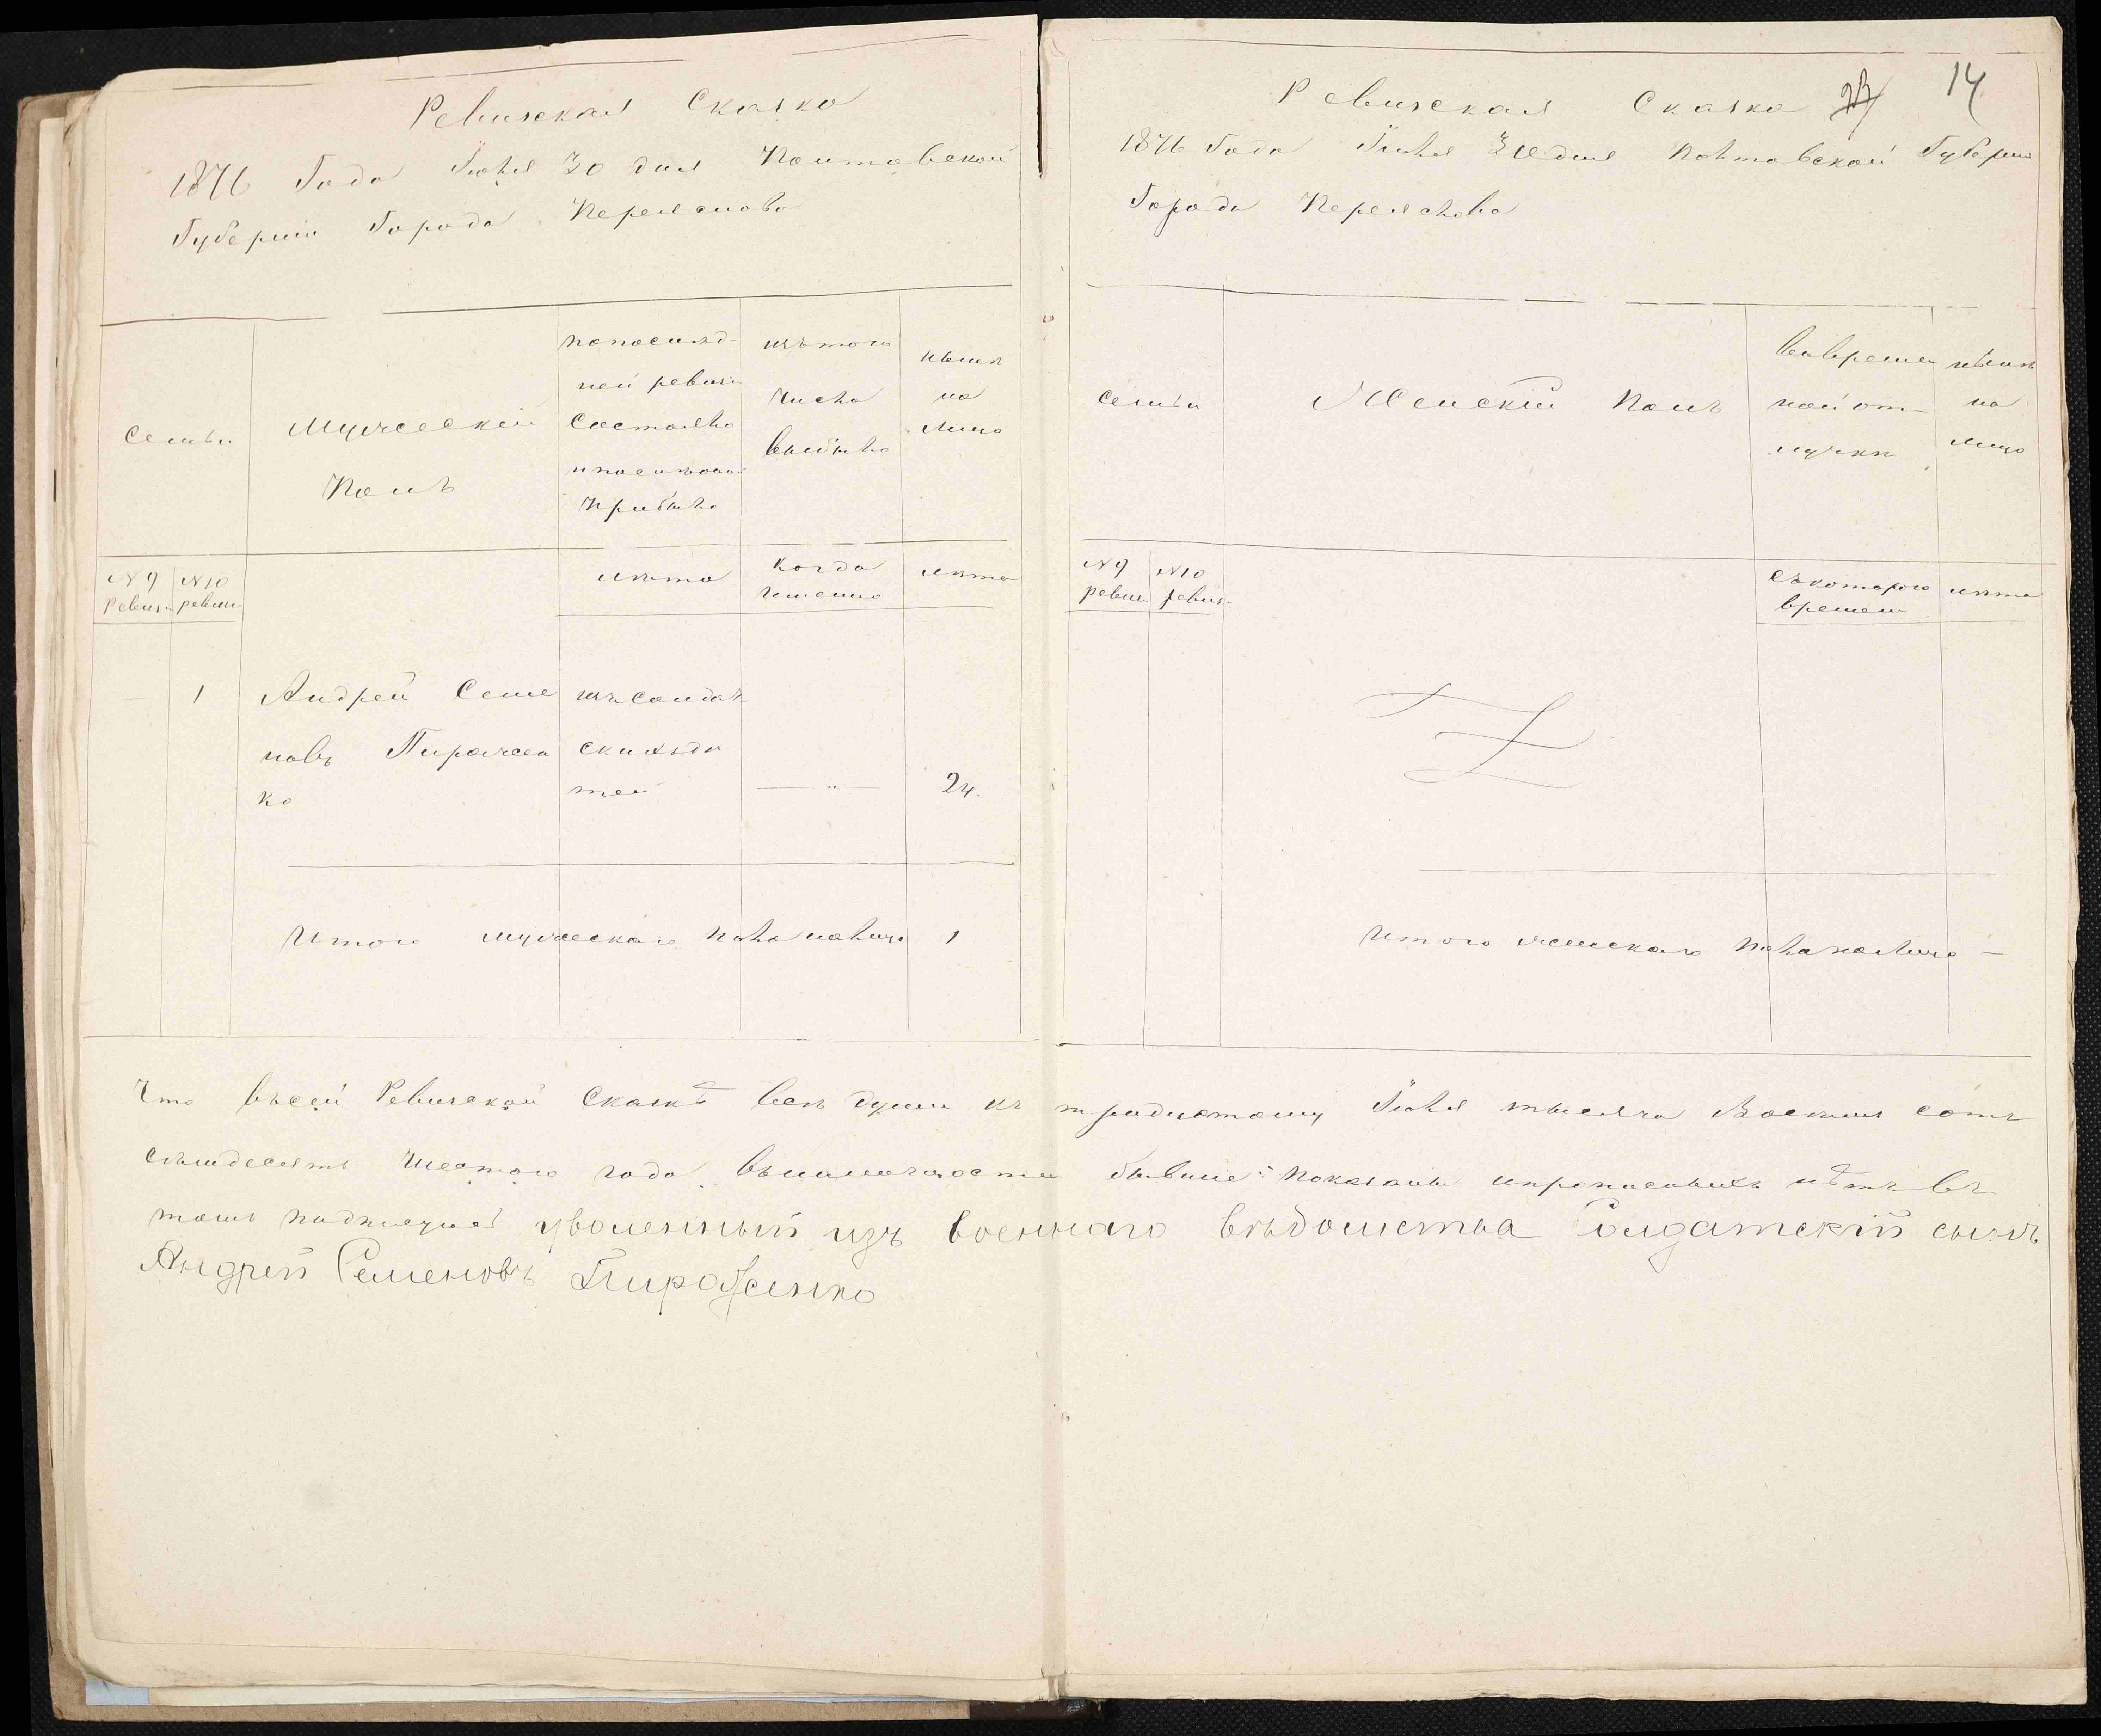 Ревизская Сказка
1876 Года Іюня 30 дня Полтавской
Губерніи Города Переяслова
Семьи
Мужескій
Полъ
попослѣд-
ней ревизіи
Состояло
и послѣ того
Прибыло
изътого
Числа
выбыло
нынѣ
на
лицо
№ 9 ревиз №10 ревиз
лѣта
Когда
именно
лѣта
— 1 Андрей Семе изъ солдат-
новъ Пиражен  скихъ дѣ
ко тей — „ — 24.
Итого мужескаго пола налицо 1
14
Ревизская Сказка
1876 Года Іюня 30 дня Полтавской Губерніи
Города Переяслова
Семьи
Женскій Полъ
вовремен
ной от-
лучки
нынѣ
на
лицо
№9 ревиз №10 ревиз-
съкотораго
времени
лѣта
Итого женскаго пола налицо —
Что въсей Ревизской Сказкѣ всѣ души къ тридцатому Іюня тысяча восемь сотъ
семьдесятъ шестого года въналичности бывшіе показаны ипрописныхъ нѣтъ въ
томъ подписуюсь уволенный изъ военнаго вѣдомства Солдатскій сынъ
Андрей Семеновъ Пираженко